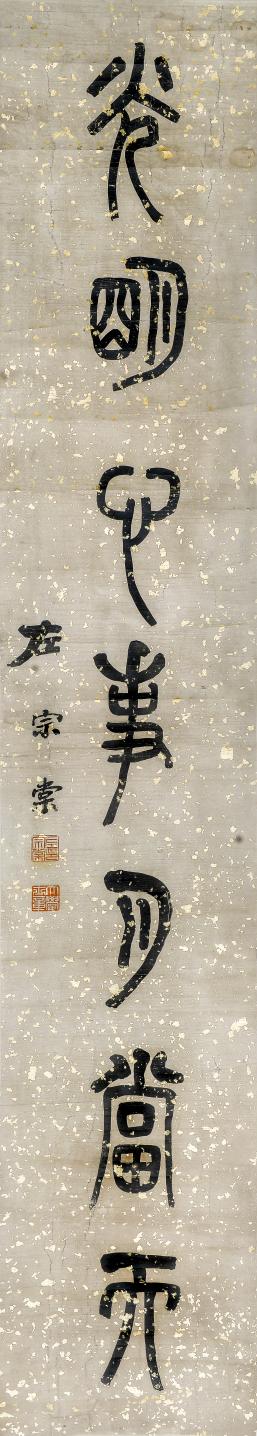 光明心事月當天
左宗棠